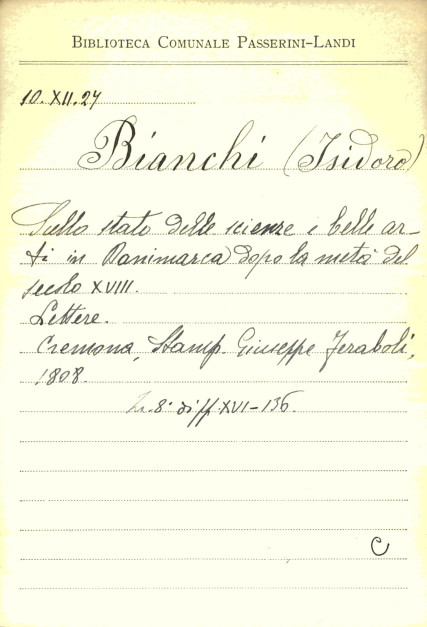 BIBLIOTECA COMUNALE PASSERINI-LANDI
10.XII.24
Bianchi (Isidoro)
Sullo stato delle scienze e belle ar-
ti in Danimarca dopo la metà del
secolo XVIII.
Lettere.
Cremona, Stamp. Giuseppe Feraboli,
1808.
In 8° di ff. XVI-136.
C